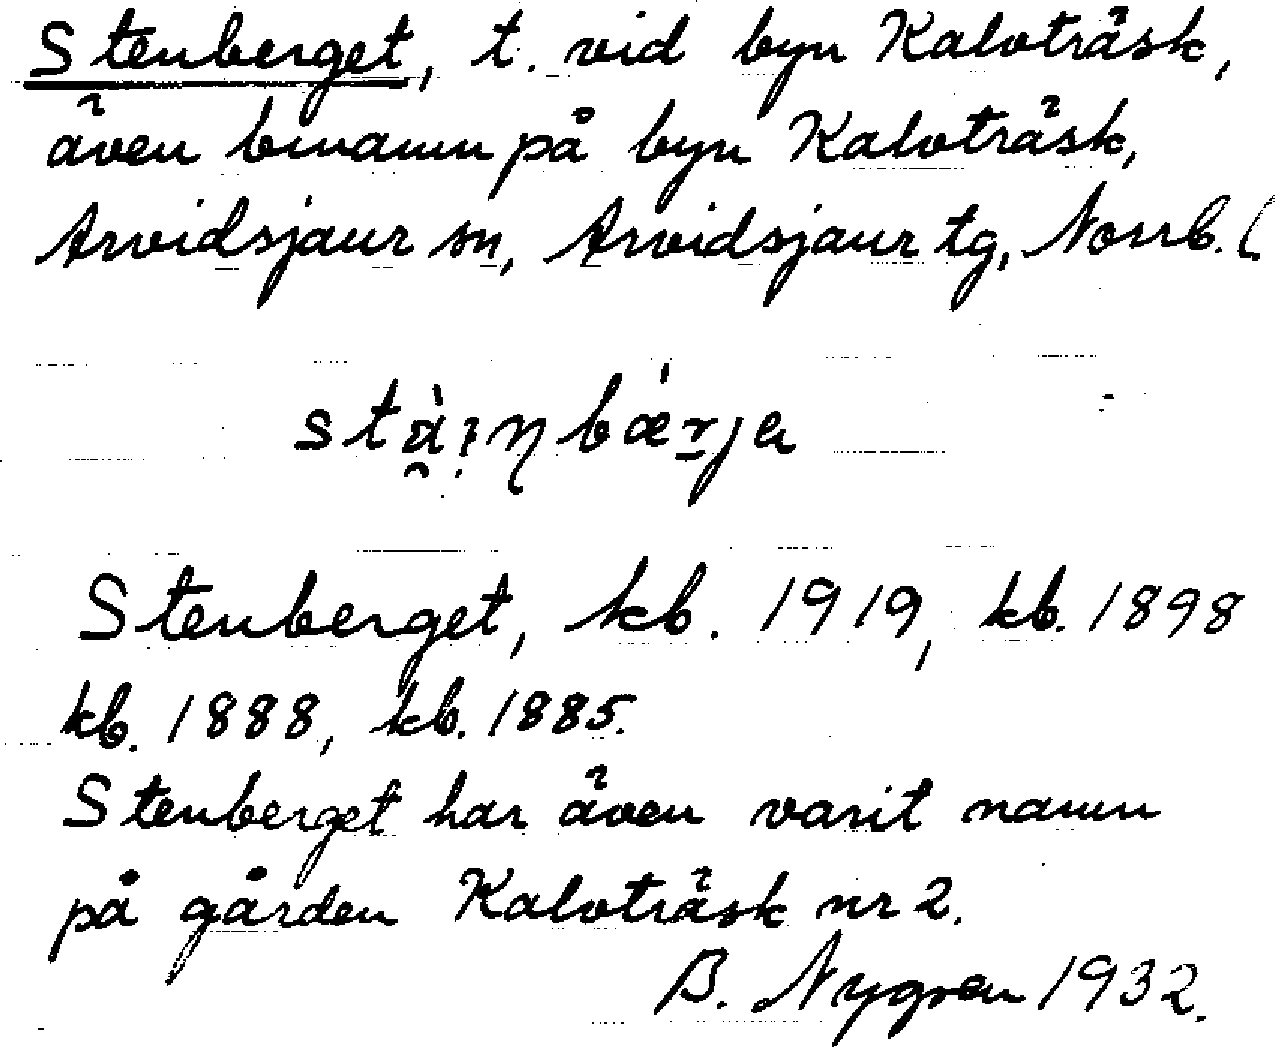 Stenberget, t. vid byn Kalvträsk,
även binamn på byn Kalvträsk,
Arvidsjaur sn, Arvidsjaur tg, Norrb. l
Stenberget, kb. 1919, kb. 1898
kb. 1888, kb. 1885.
Stenberget har även varit namn
på gården Kalvträsk nr 2.
B. Nygren 1932.